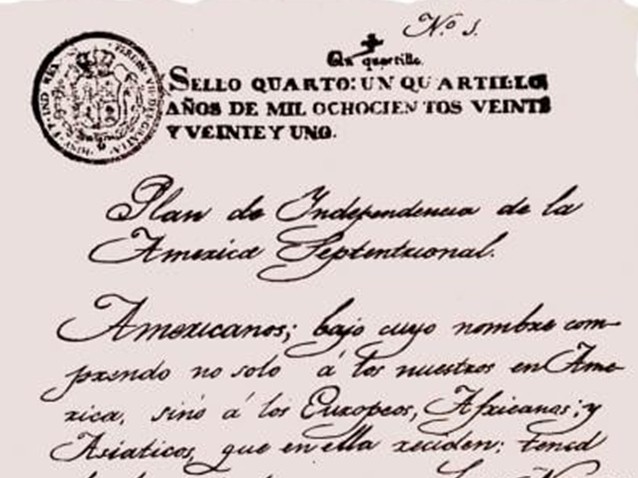 N.º 1.
Un quartillo.
SELLO QUARTO: UN QUARTILLO,
AÑOS DE MIL OCHOCIENTOS VEINTE
Y VEINTE Y UNO.
Plan de Independencia de la
America Septentrional.
Americanos; bajo cuyo nombre com-
prendo no solo á los nuestros en Ame-
rica, sinó á los Europeos, Africanos; y
Asiaticos, que en ella reciden: tened